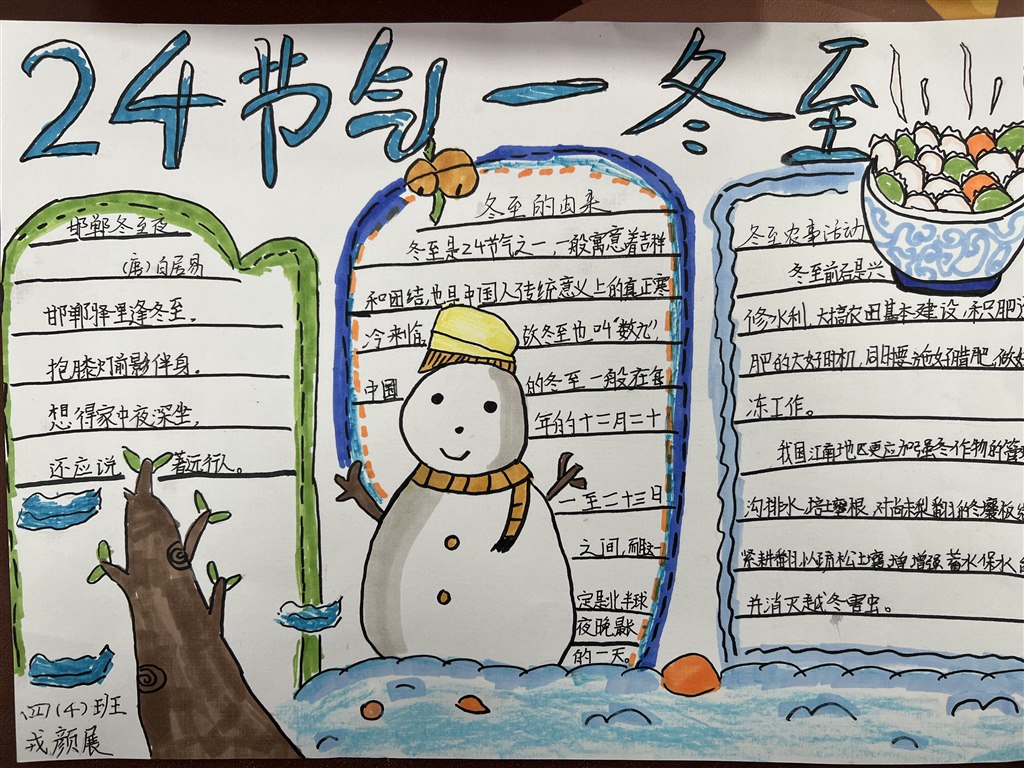 24节气一冬至
邯郸冬至夜
(唐)白居易
邯郸驿里逢冬至.
抱膝灯前影伴身.
想得家中夜深坐,
还应说着远行人。
四(4)班
戎颜展
冬至的由来
冬至是24节气之一,一般寓意着吉祥
和团结,也是中国人传统意义上的真正寒
冷来临 故冬至也叫“数九”,
中国 的冬至一般在每
年的十二月二十
一至二十三日
之间,而这一
定是北半球
夜晚最长
的一天。
冬至农事活动
冬至前后是兴
修水利,大搞农田基本建设,积肥
肥的大好时机,同时要施好腊肥,做好
冻工作。
我国江南地区更应加强冬作物的管
沟排水,培土壅根,对尚未犁翻的冬壤板
紧耕翻以疏松土壤,增增强蓄水保水
并消灭越冬害虫。